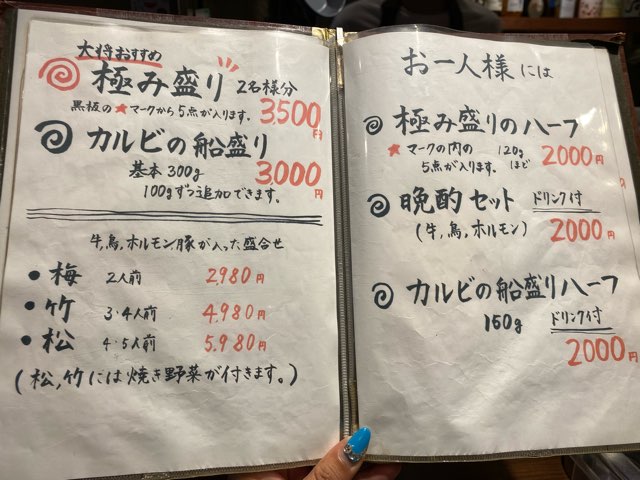 大将おすすめ
極み盛り 2名様分
黒板の★マークから5点が入ります。 3500円
カルビの船盛り
基本 300g 3000円
100gずつ追加できます。
牛,鳥,ホルモン,豚が入った盛合せ
• 梅 2人前 2,980円
• 竹 3・4人前 4,980円
• 松 4・5人前 5,980円
(松,竹には焼き野菜が付きます。)
お一人様には
極み盛りのハーフ
★マークの内の 120g
5点が入ります。 ほど 2000円
晩酌セット ドリンク付
(牛,鳥,ホルモン) 2000円
カルビの船盛りハーフ
150g ドリンク付
2000円